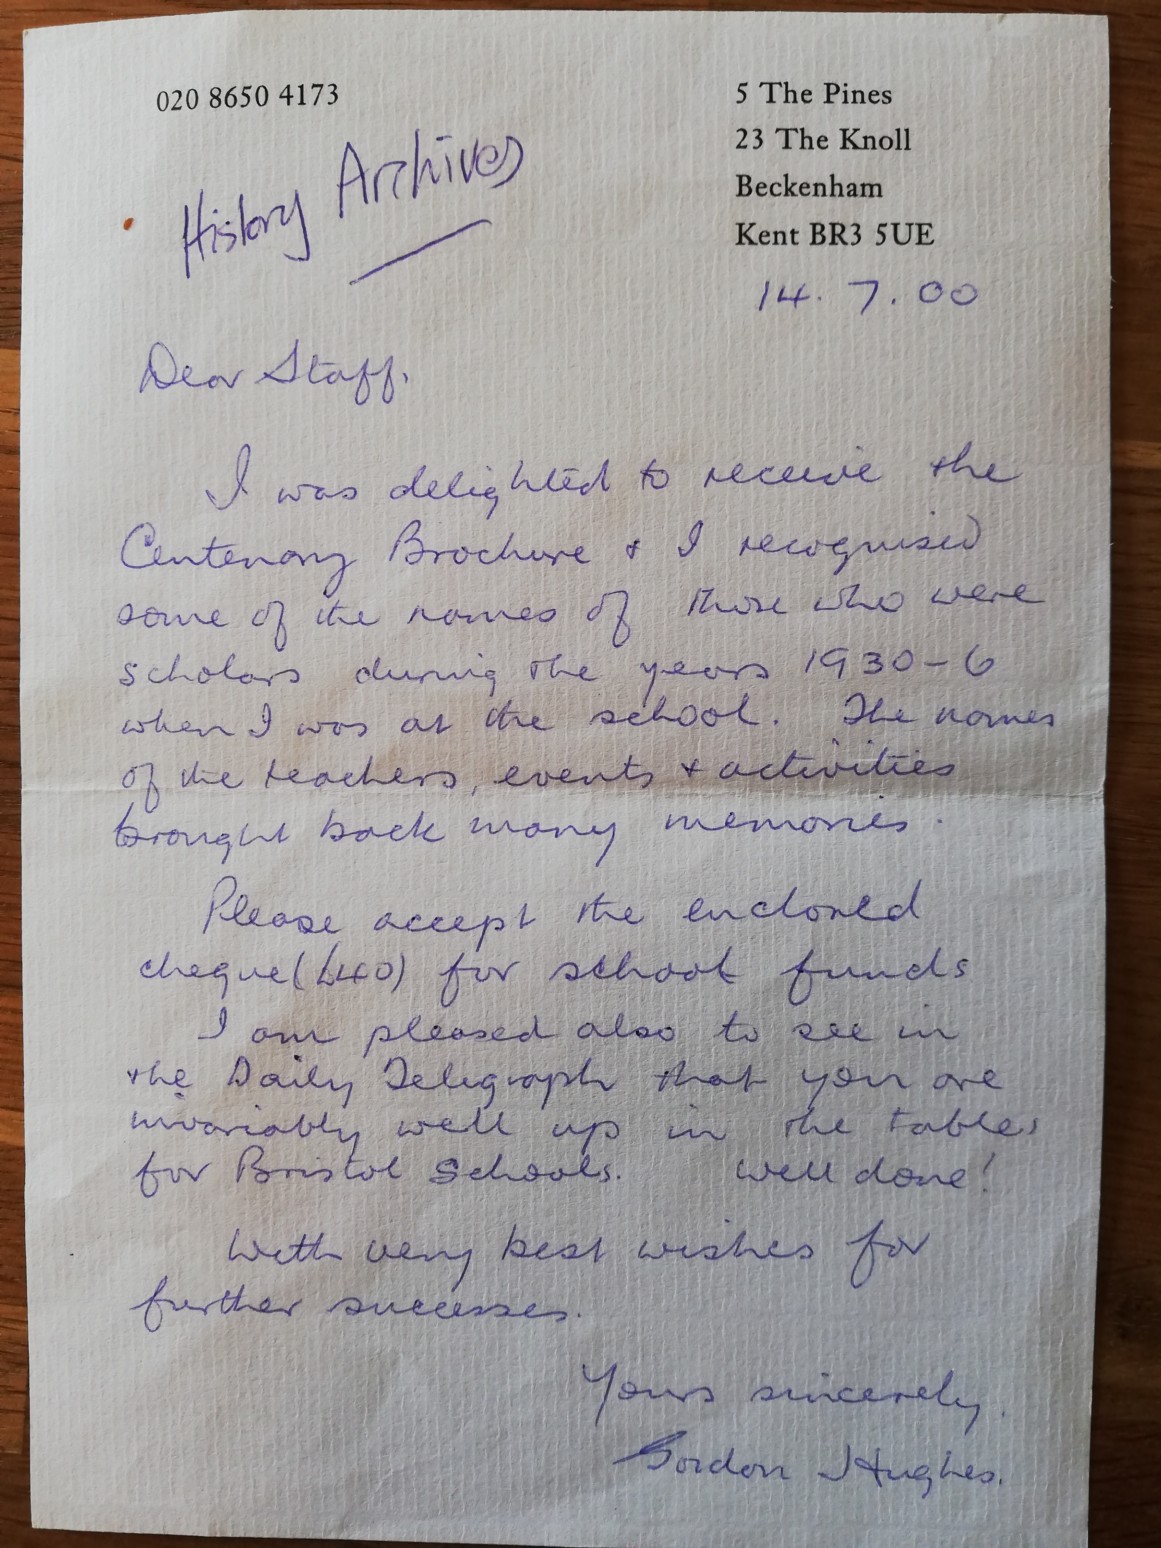 020 8650 4173
5 The Pines
23 The Knoll
Beckenham
Kent BR3 5UE
History Archives
14.7.00
Dear Staff,
I was delighted to receive the
Centenary Brochure & I recognised
some of the names of those who were
scholars during the years 1930-6
when I was at the school. The names
of the teachers, events & activities
brought back many memories.
Please accept the enclosed
cheque (£40) for school funds
I am pleased also to see in
the Daily Telegraph that you are
invariably well up in the tables
for Bristol Schools. Well done!
With very best wishes for
further successes.
Yours sincerely,
Gordon Hughes.